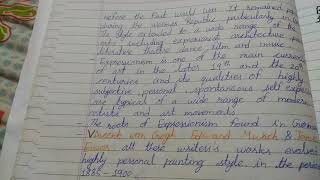 before the First World War. It remained popular
during the Weimar Republic particularly in
its style extended to a wide range of the
arts including expressionist architecture
literature theatre dance film and music.
Expressionism is one of the main currents
of art in the later 19th and the 20th
centuries and its qualities of highly
subjective personal spontaneous self expression
are typical of a wide range of modern
artists and art movements.
The roots of Expressionism found in German
Vincent van Gogh Edvard Munch &
all these writer's works evolves
highly personal painting style in the period
1885-1900